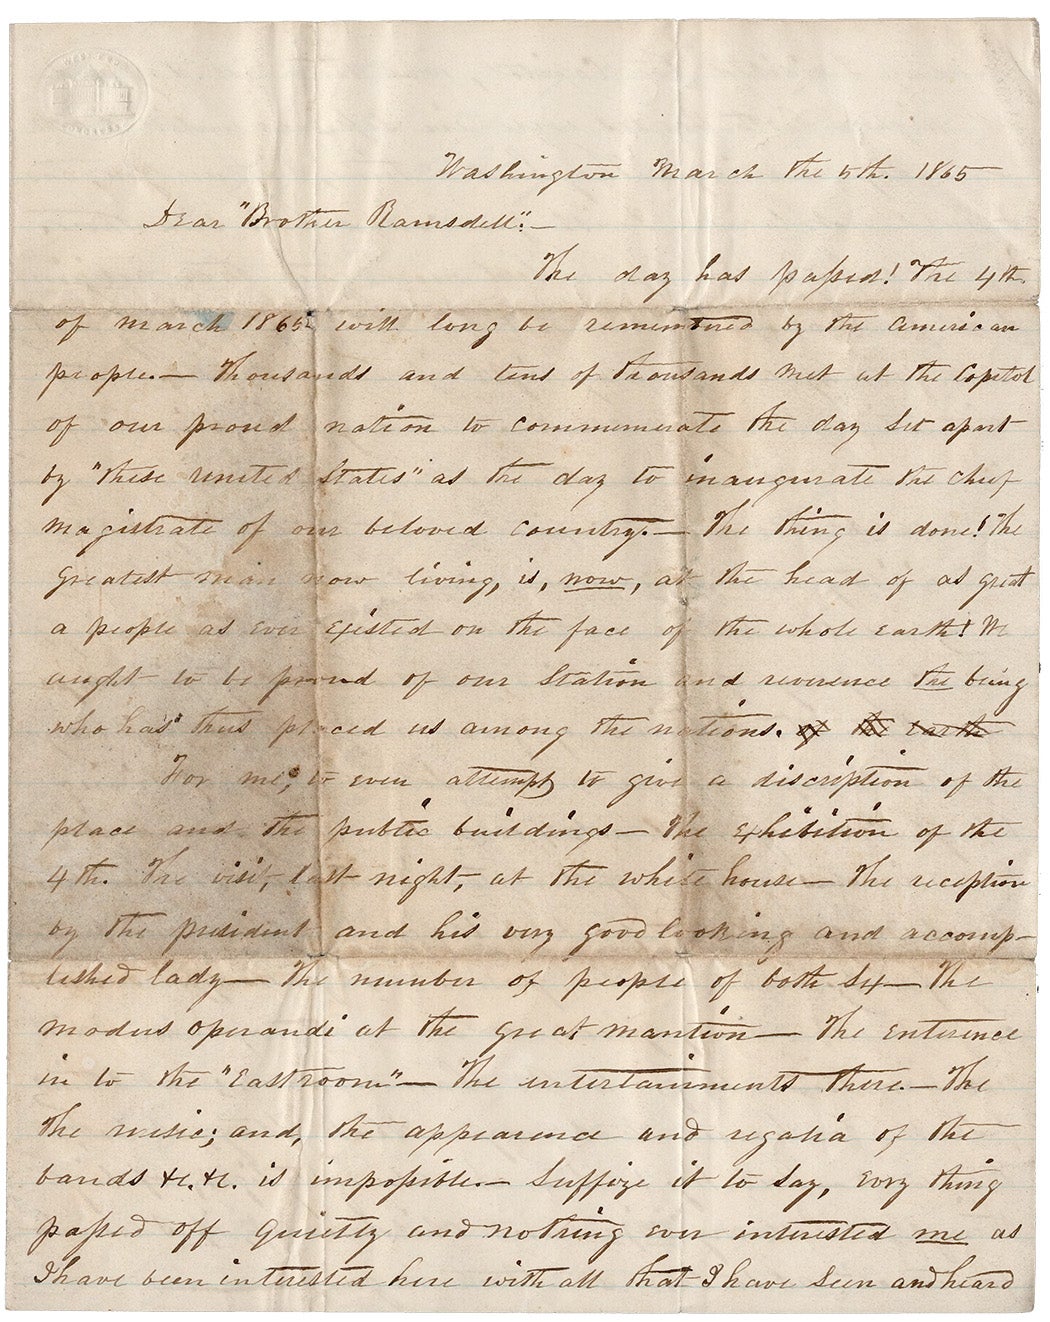 Washington March the 5th. 1865
Dear "Brother Ramsdell":—
The day has passed! The 4th.
of march 1865 will long be remembered by the American
people.— Thousands and tens of thousands met at the Capitol
of our proud nation to commemerate the day set apart
by "these united States" as the day to inaugurate the chief
magistrate of our beloved country.— The thing is done! The
greatest man now living, is, now, at the head of as great
a people as ever existed on the face of the whole earth! We
aught to be proud of our Station and reverence the being
who has thus placed us among the nations. of the earth
For me, to even attempt to give a discription of the
place and the public buildings— The exhibition of the
4th. The visit, last night, at the white house— The reception
by the president and his very good looking and accomp-
lished lady— The number of people of both sex— The
modus operandi at the great mantion— The enterence
in to the "East room"— The entertainments there.— The
the music; and, the appearence and regalia of the
bands &c. &c. is impossible.— Suffize it to say, evry thing
passed off quietly and nothing ever interested me as
I have been interested here with all that I have seen and heard